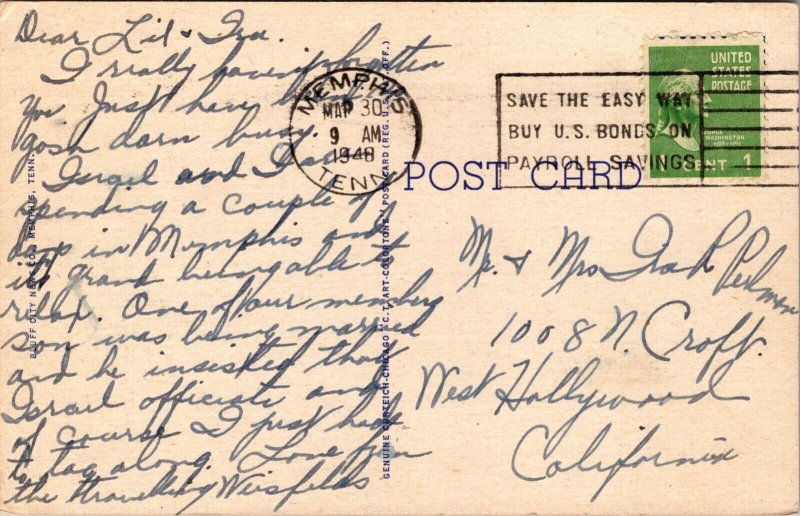 Dear Lil & Ira.
I really haven't forgotten
you Just have been
gosh darn busy.
Israel and I are
spending a couple of
days in Memphis and
it's grand being able to
relax. One of our members
son was being married
and he insisted that
Israel officiate and
of course I just had
to tag along. Love from
the travelling Weisfelds
BLUFF CITY NEWS CO., MEMPHIS, TENN.
GENUINE CURTEICH-CHICAGO "C.T. ART-COLORTONE" POST CARD (REG. U.S. PAT. OFF.)
MEMPHIS
MAR 30
9 AM
1948
TENN.
SAVE THE EASY WAY
BUY U.S. BONDS ON
PAYROLL SAVINGS
UNITED
STATES
POSTAGE
GEORGE
WASHINGTON
1789-1797
CENT 1
POST CARD
Mr. & Mrs Ira R Perlman
1008 N. Croft.
West Hollywood
California